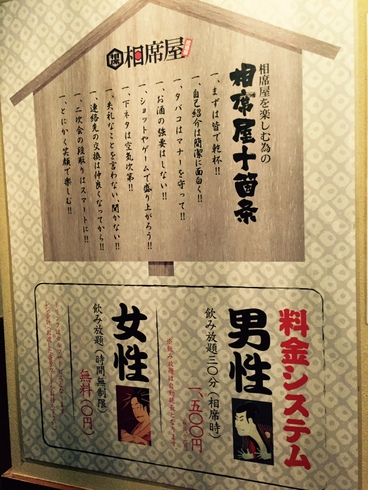 相席屋
相席屋を楽しむ為の
相席屋十箇条
一、まずは皆で乾杯!!
一、自己紹介は簡潔に面白く!!
一、タバコはマナーを守って!!
一、お酒の強要はしない!!
一、ショットやゲームで盛り上がろう!!
一、下ネタは空気次第!!
一、失礼なことを言わない、聞かない!!
一、連絡先の交換は仲良くなってから!!
一、二次会の段取りはスマートに!!
一、とにかく笑顔で楽しむ!!
料金システム
男性
飲み放題三〇分(相席時)
一、五〇〇円
女性
飲み放題(時間無制限)
無料(〇円)